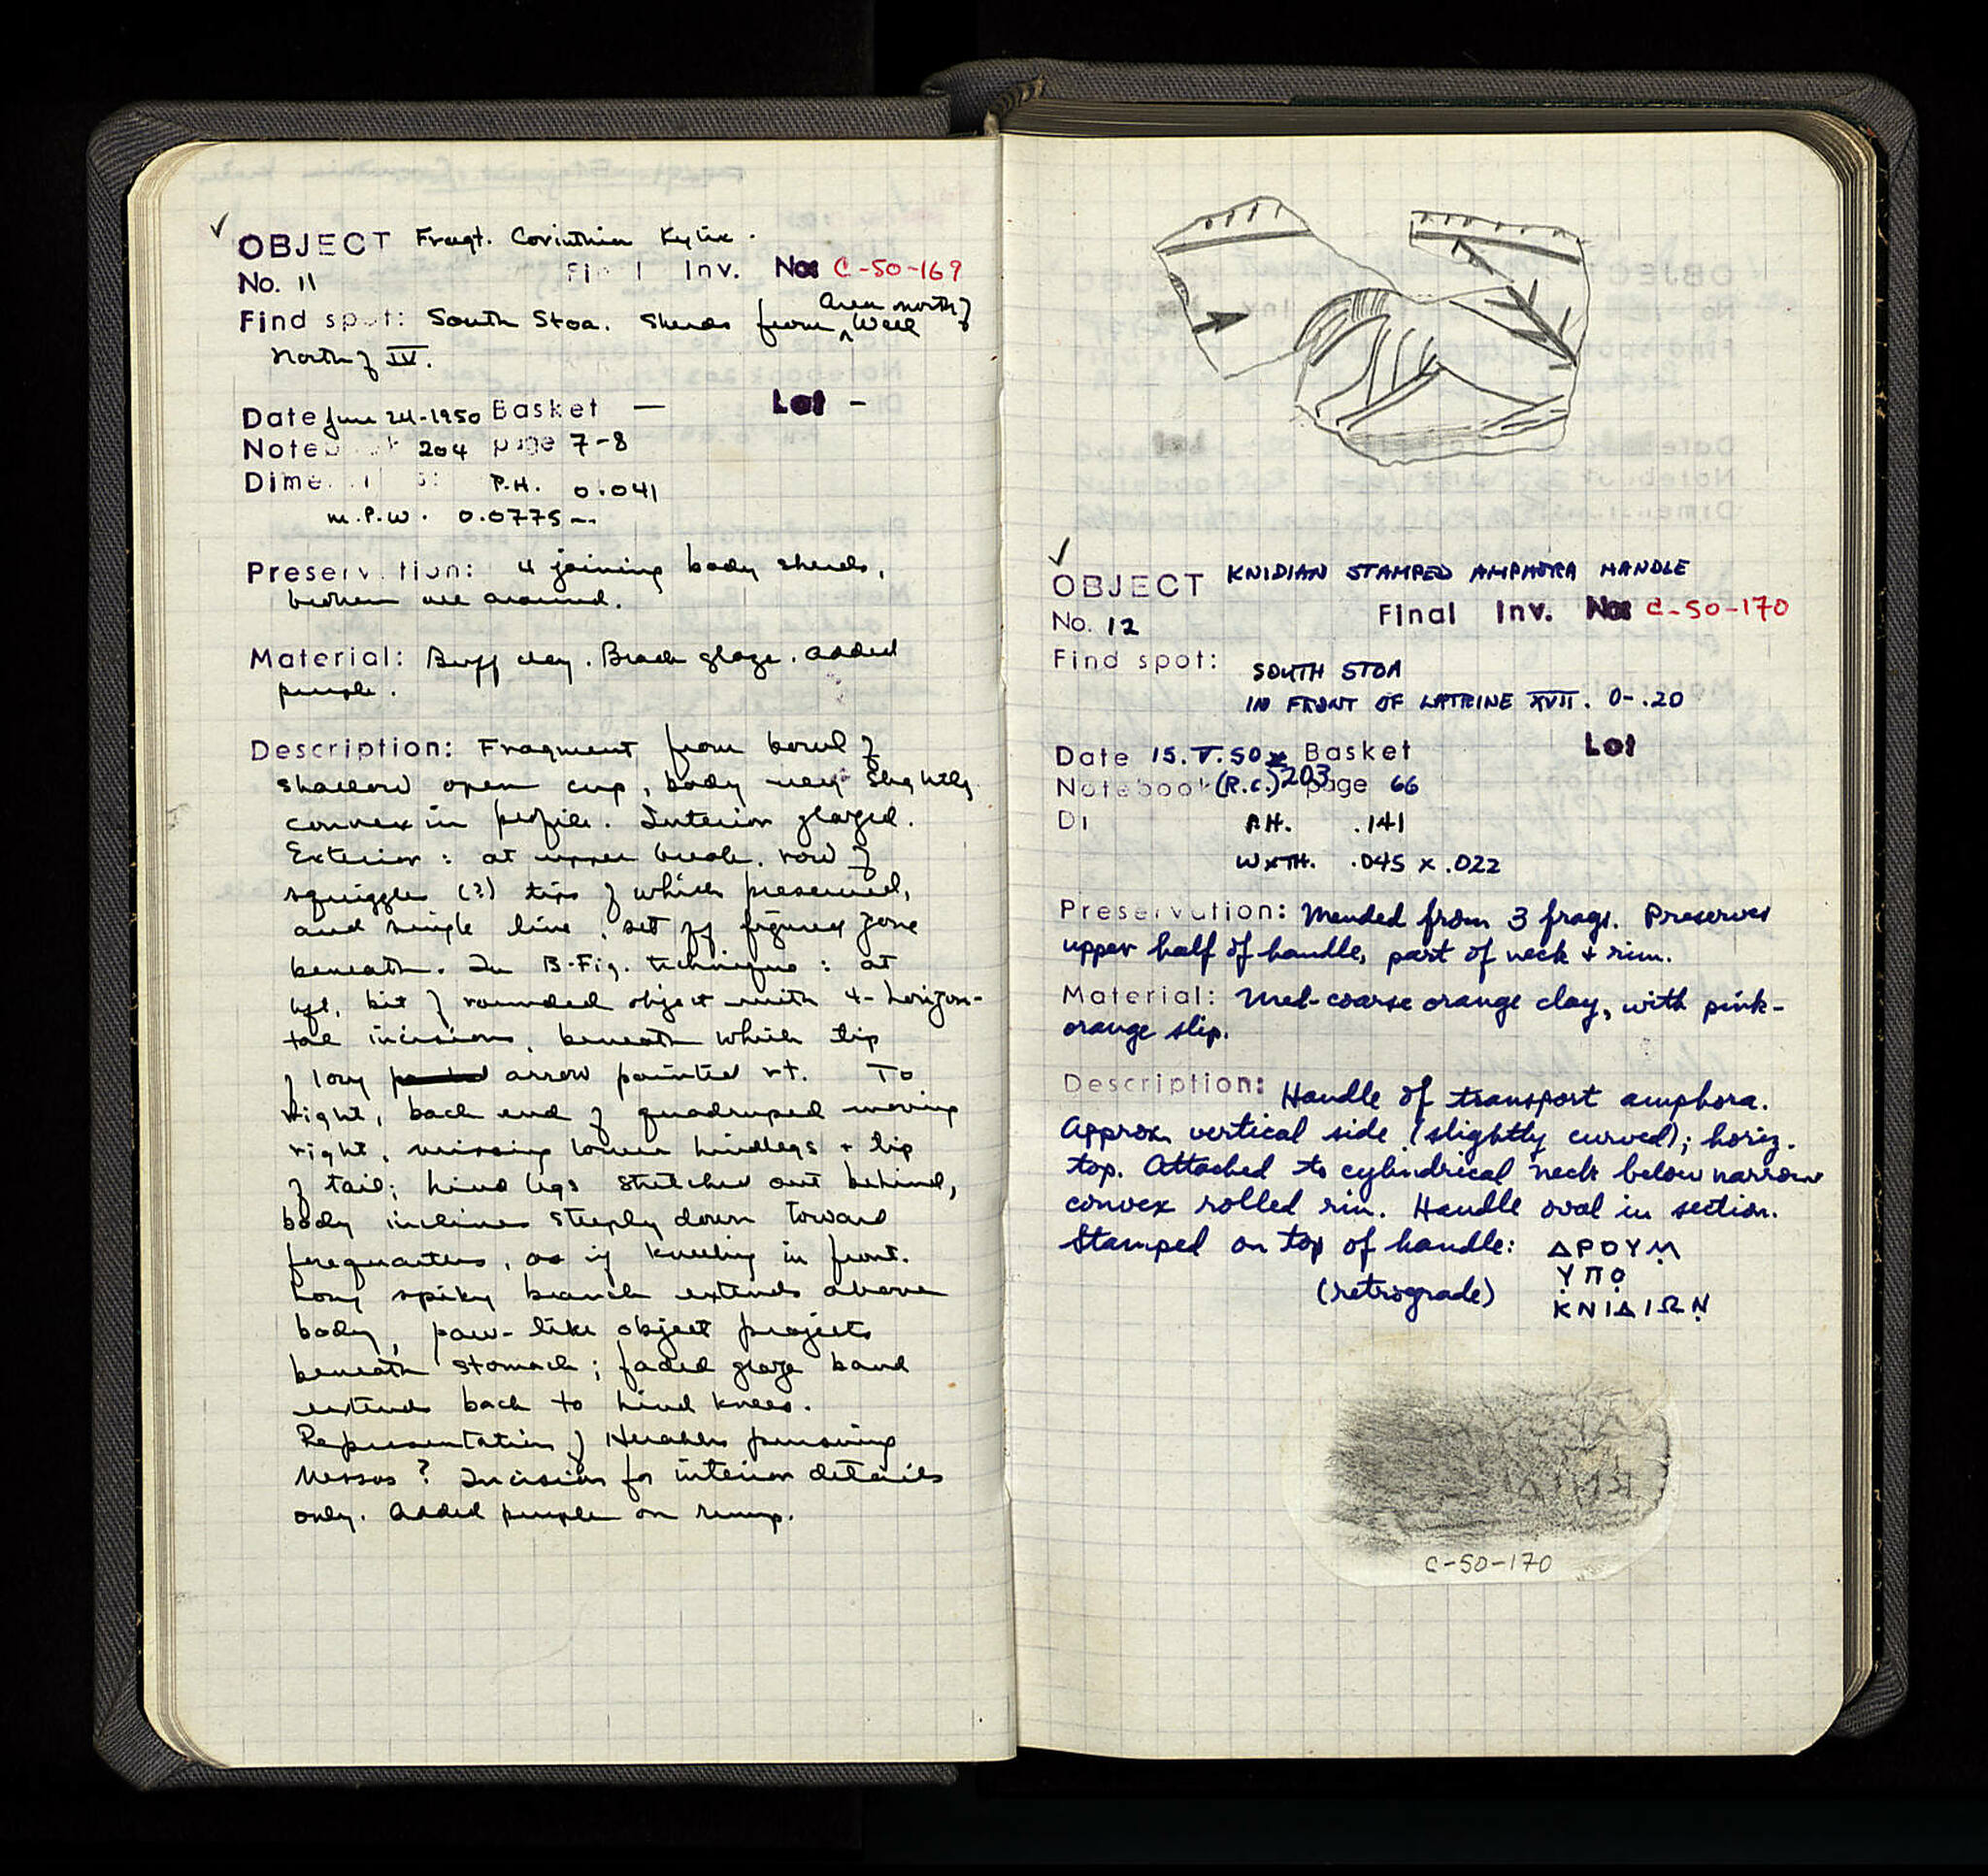 ✓
OBJECT Fragt. Corinthian Kylix.
No. 11 Final Inv. No: C-50-169
Find spot: South Stoa. Sherds from ^ area north of Well
North of IV.
Date June 24-1950 Basket — Lot -
Notebook 204 page 7-8
Dimensions: P.H. 0.041
m.P.W. 0.0775--
Preservation: 4 joining body sherds,
broken all around.
Material: Buff clay. Black glaze. added
purple.
Description: Fragment from bowl of
shallow open cup, body very slightly
convex in profile. Interior glazed.
Exterior: at upper break, row of
squiggles (?) tips of which preserved,
and single line, set off figured zone
beneath. In B-Fig. technique: at
left, bit of rounded object with 4-horizon-
tal incisions, beneath which tip
of long arrow painted rt. To
right, back end of quadruped moving
right, missing lower hindlegs + tip
of tail; hind legs stretched out behind,
body inclines steeply down toward
forequarters, as if kneeling in front.
Long spiky branch extends above
body, paw-like object projects
beneath stomach; faded glaze band
extends back to hind knees.
Representation of Herakles pursuing
Nessos? Incision for interior details
only. Added purple on rump.
✓
OBJECT KNIDIAN STAMPED AMPHORA HANDLE
No. 12 Final Inv. No: C-50-170
Find spot: SOUTH STOA
IN FRONT OF LATRINE XVII. 0-.20
Date 15.V.50 Basket Lot
Notebook (R.C.) 203 page 66
Di P.H. .141
W×TH. .045 x .022
Preservation: Mended from 3 frags. Preserves
upper half of handle, part of neck + rim.
Material: Med-coarse orange clay, with pink-
orange slip.
Description: Handle of transport amphora.
Approx. vertical side (slightly curved); horiz.
top. Attached to cylindrical neck below narrow
convex rolled rim. Handle oval in section.
Stamped on top of handle: ΔΡΟΥΜ̣
Υ̣ΠΟ̣
(retrograde) Κ̣ΝΙΔΙΩΝ̣
C-50-170